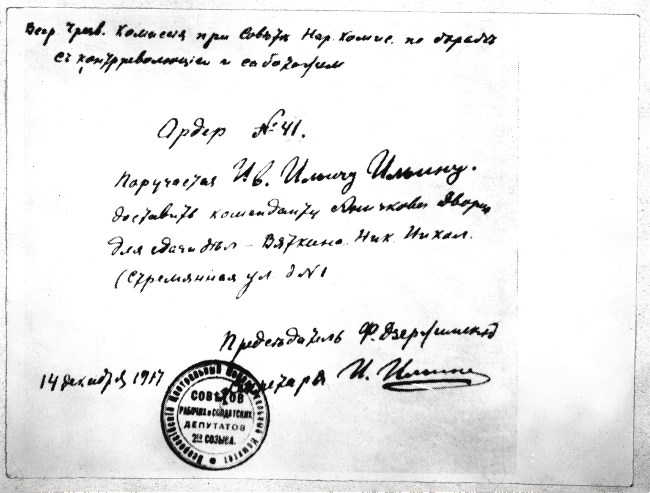 Всер. Чрезв. Комиссия при Совѣтѣ Нар. Комис. по борьбѣ
съ контрреволюціей и саботажем
Ордер № 41.
Поручается И.В. Ильичу Ильину.
доставить коменданта Аничкова Дворца
для сдачи дѣл - Вяткина Ник. Никол.
(Стремянная ул д №1
Предсѣдатель Ф. Дзержинскій
14 декабря 1917 Секретарь И. Ильин
Всероссійскій Центральный Исполнительный Комитет
СОВѢТОВ
РАБОЧИХ и СОЛДАТСКИХ
ДЕПУТАТОВ
2го СОЗЫВА.